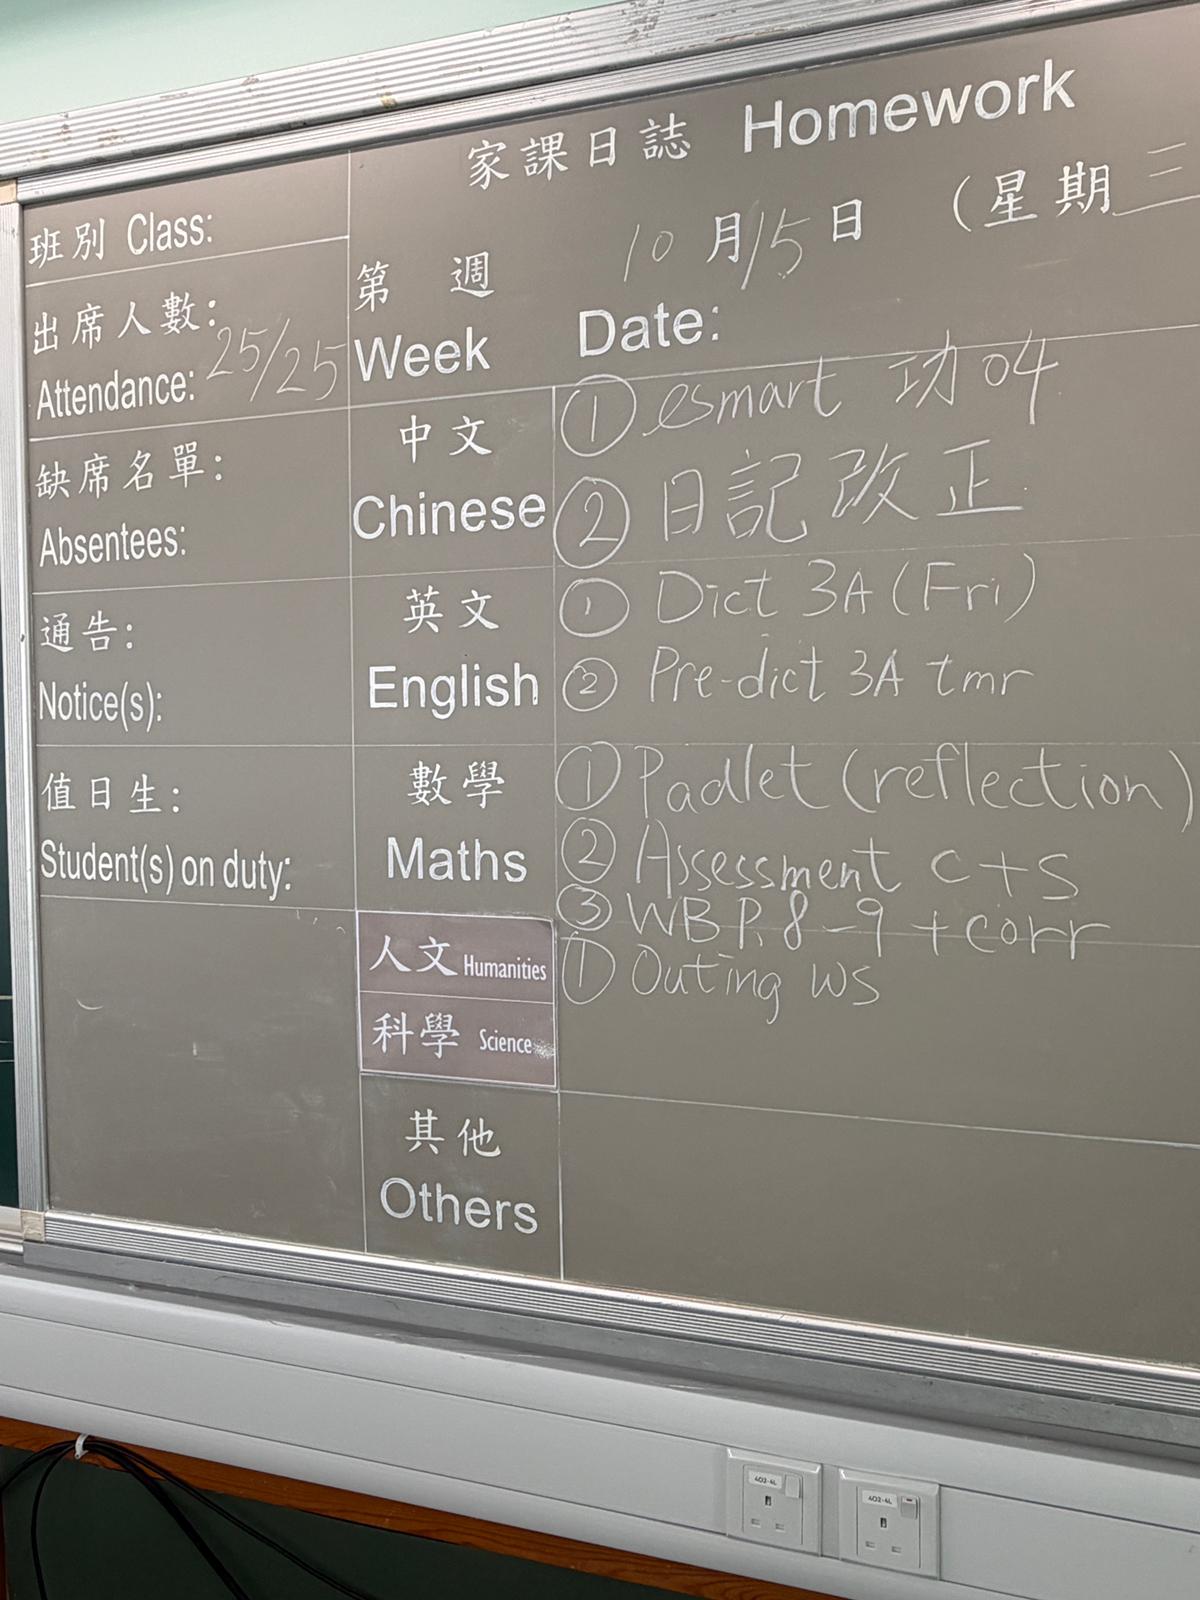 家課日誌 Homework
班別 Class:
第 週 10月15日 (星期三
Week Date:
出席人數:
Attendance: 25/25
缺席名單:
Absentees:
通告:
Notice(s):
值日生:
Student(s) on duty:
中文
Chinese
① esmart 功04
② 日記改正
英文
English
① Dict 3A (Fri)
② Pre-dict 3A tmr
數學
Maths
① Padlet (reflection)
② Assessment c+s
③ WB P. 8-9 + corr
人文 Humanities
① Outing ws
科學 Science
其他
Others
402-4L
402-4L